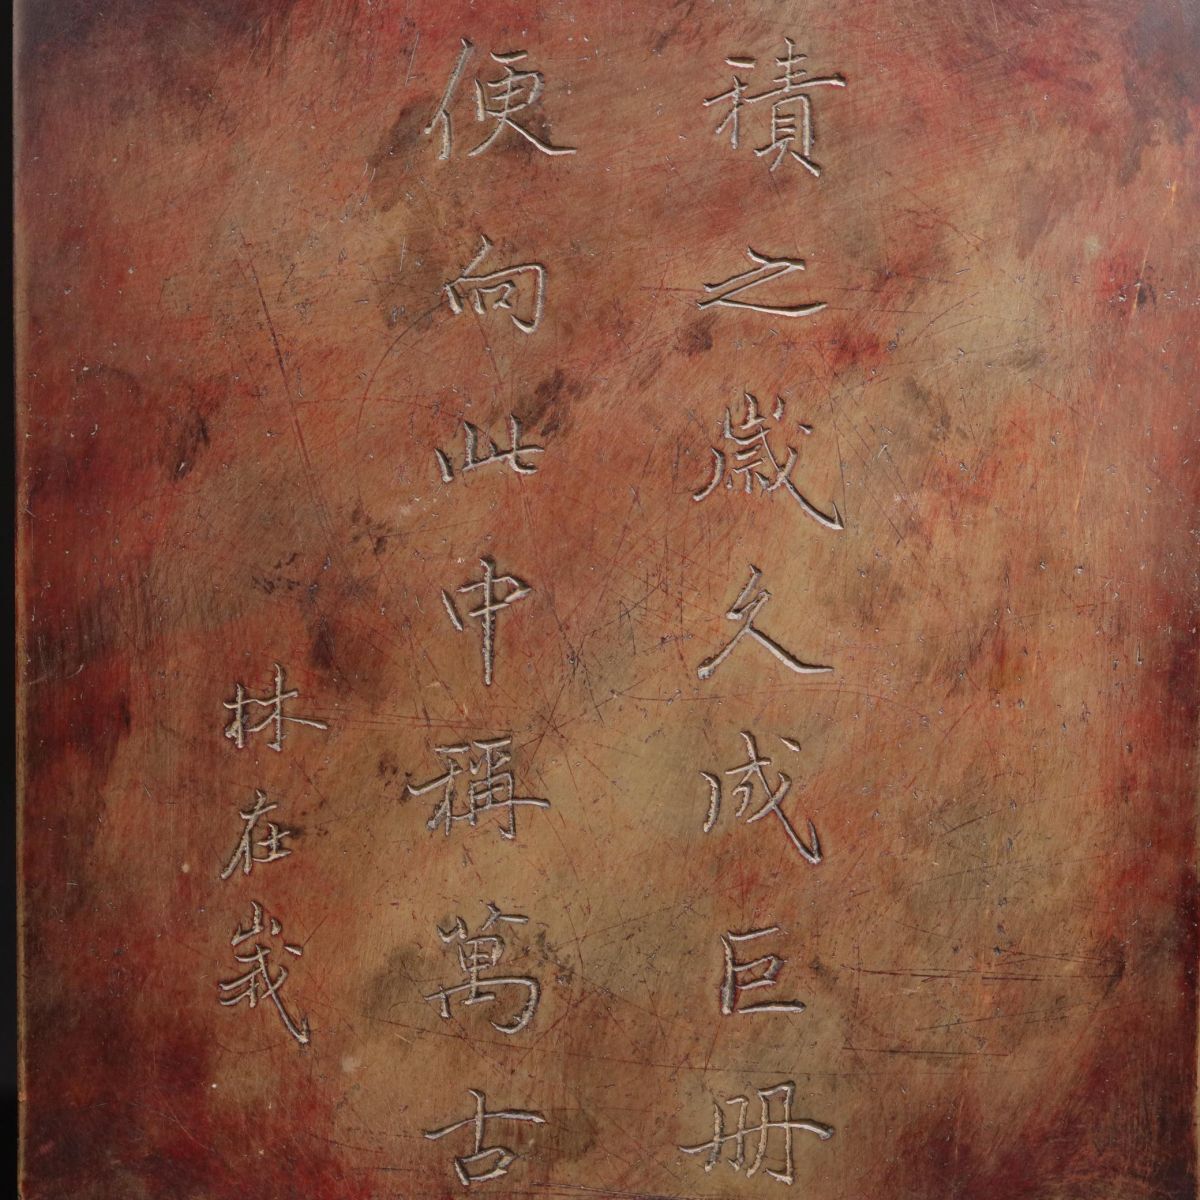 積之歲久成巨册
便向此中稱萬古
林在峩